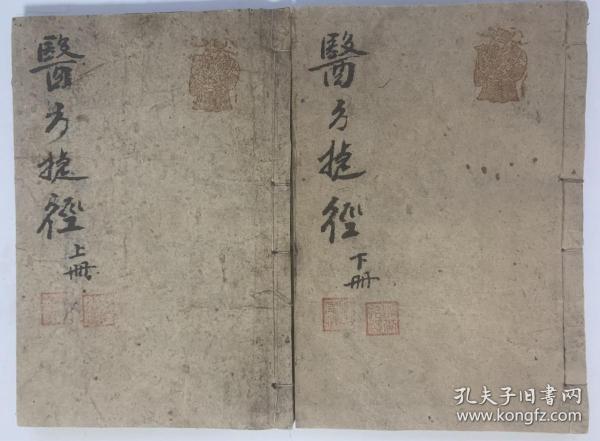 醫方捷徑
上冊
醫方捷徑
下冊
孔夫子旧书网
www.kongfz.com